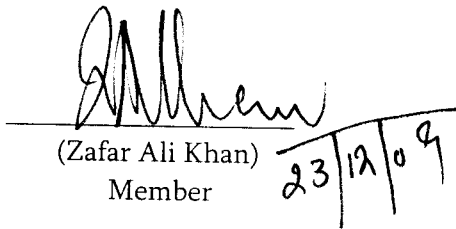 (Zafar Ali Khan)
Member
23/12/09